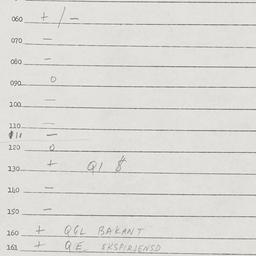 060 + / -
070 -
080 -
090 0
100 -
110 -
111 -
120 0
130 + Q1 8
140 -
150 -
160 + QGL BAKANT
161 + QE EKSPIRIENSD